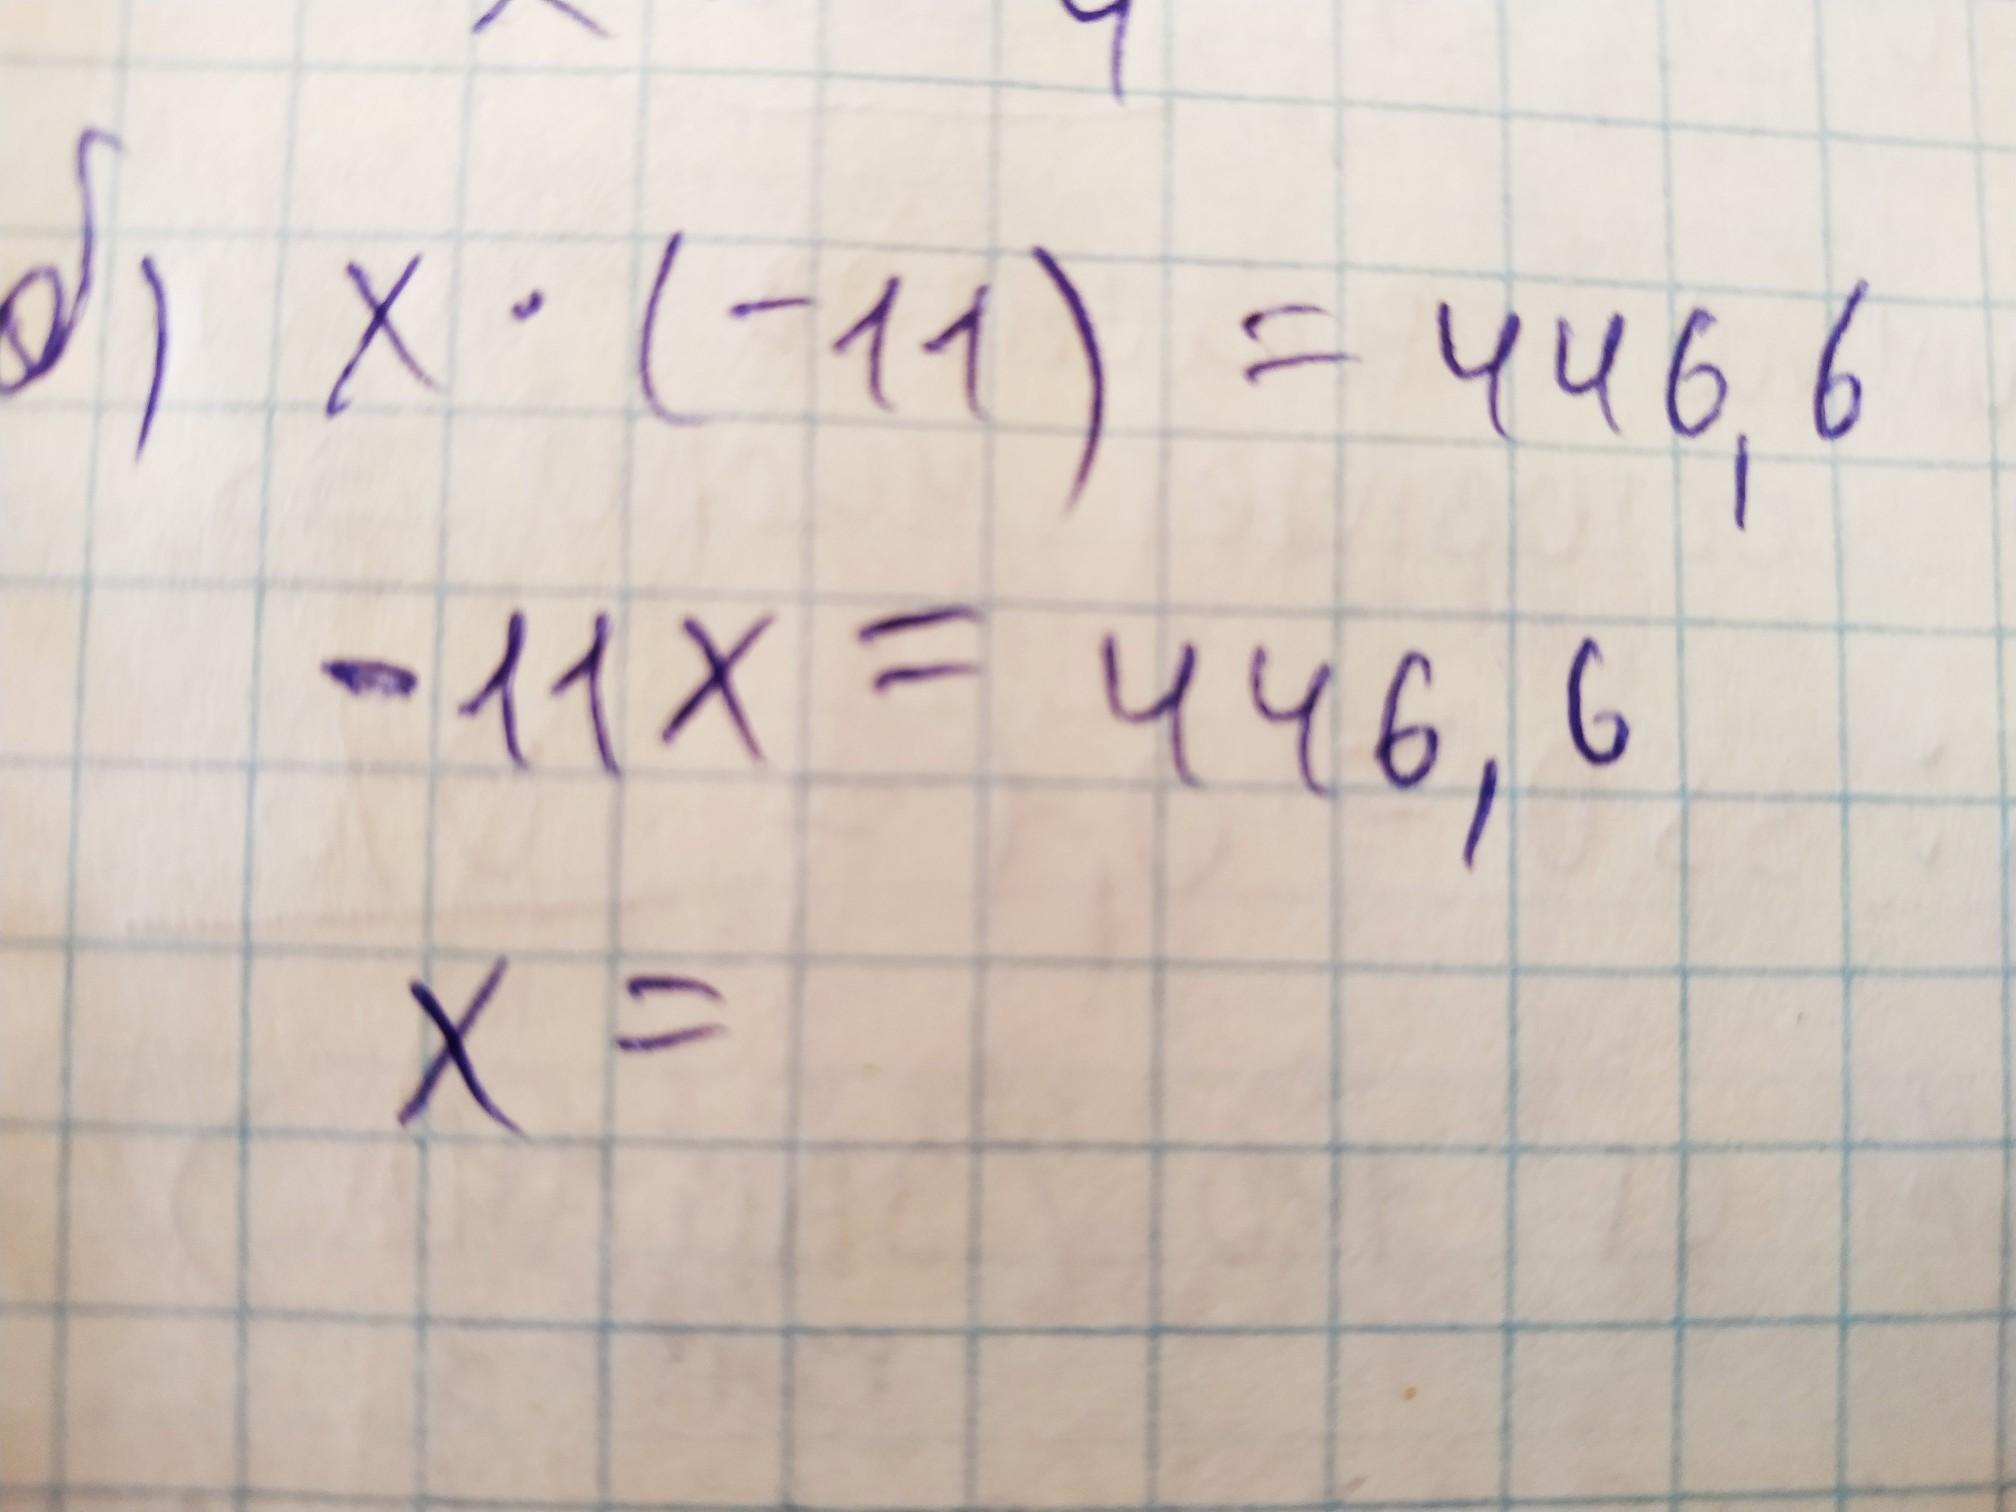 б) x · (-11) = 446,6
-11x = 446,6
x =